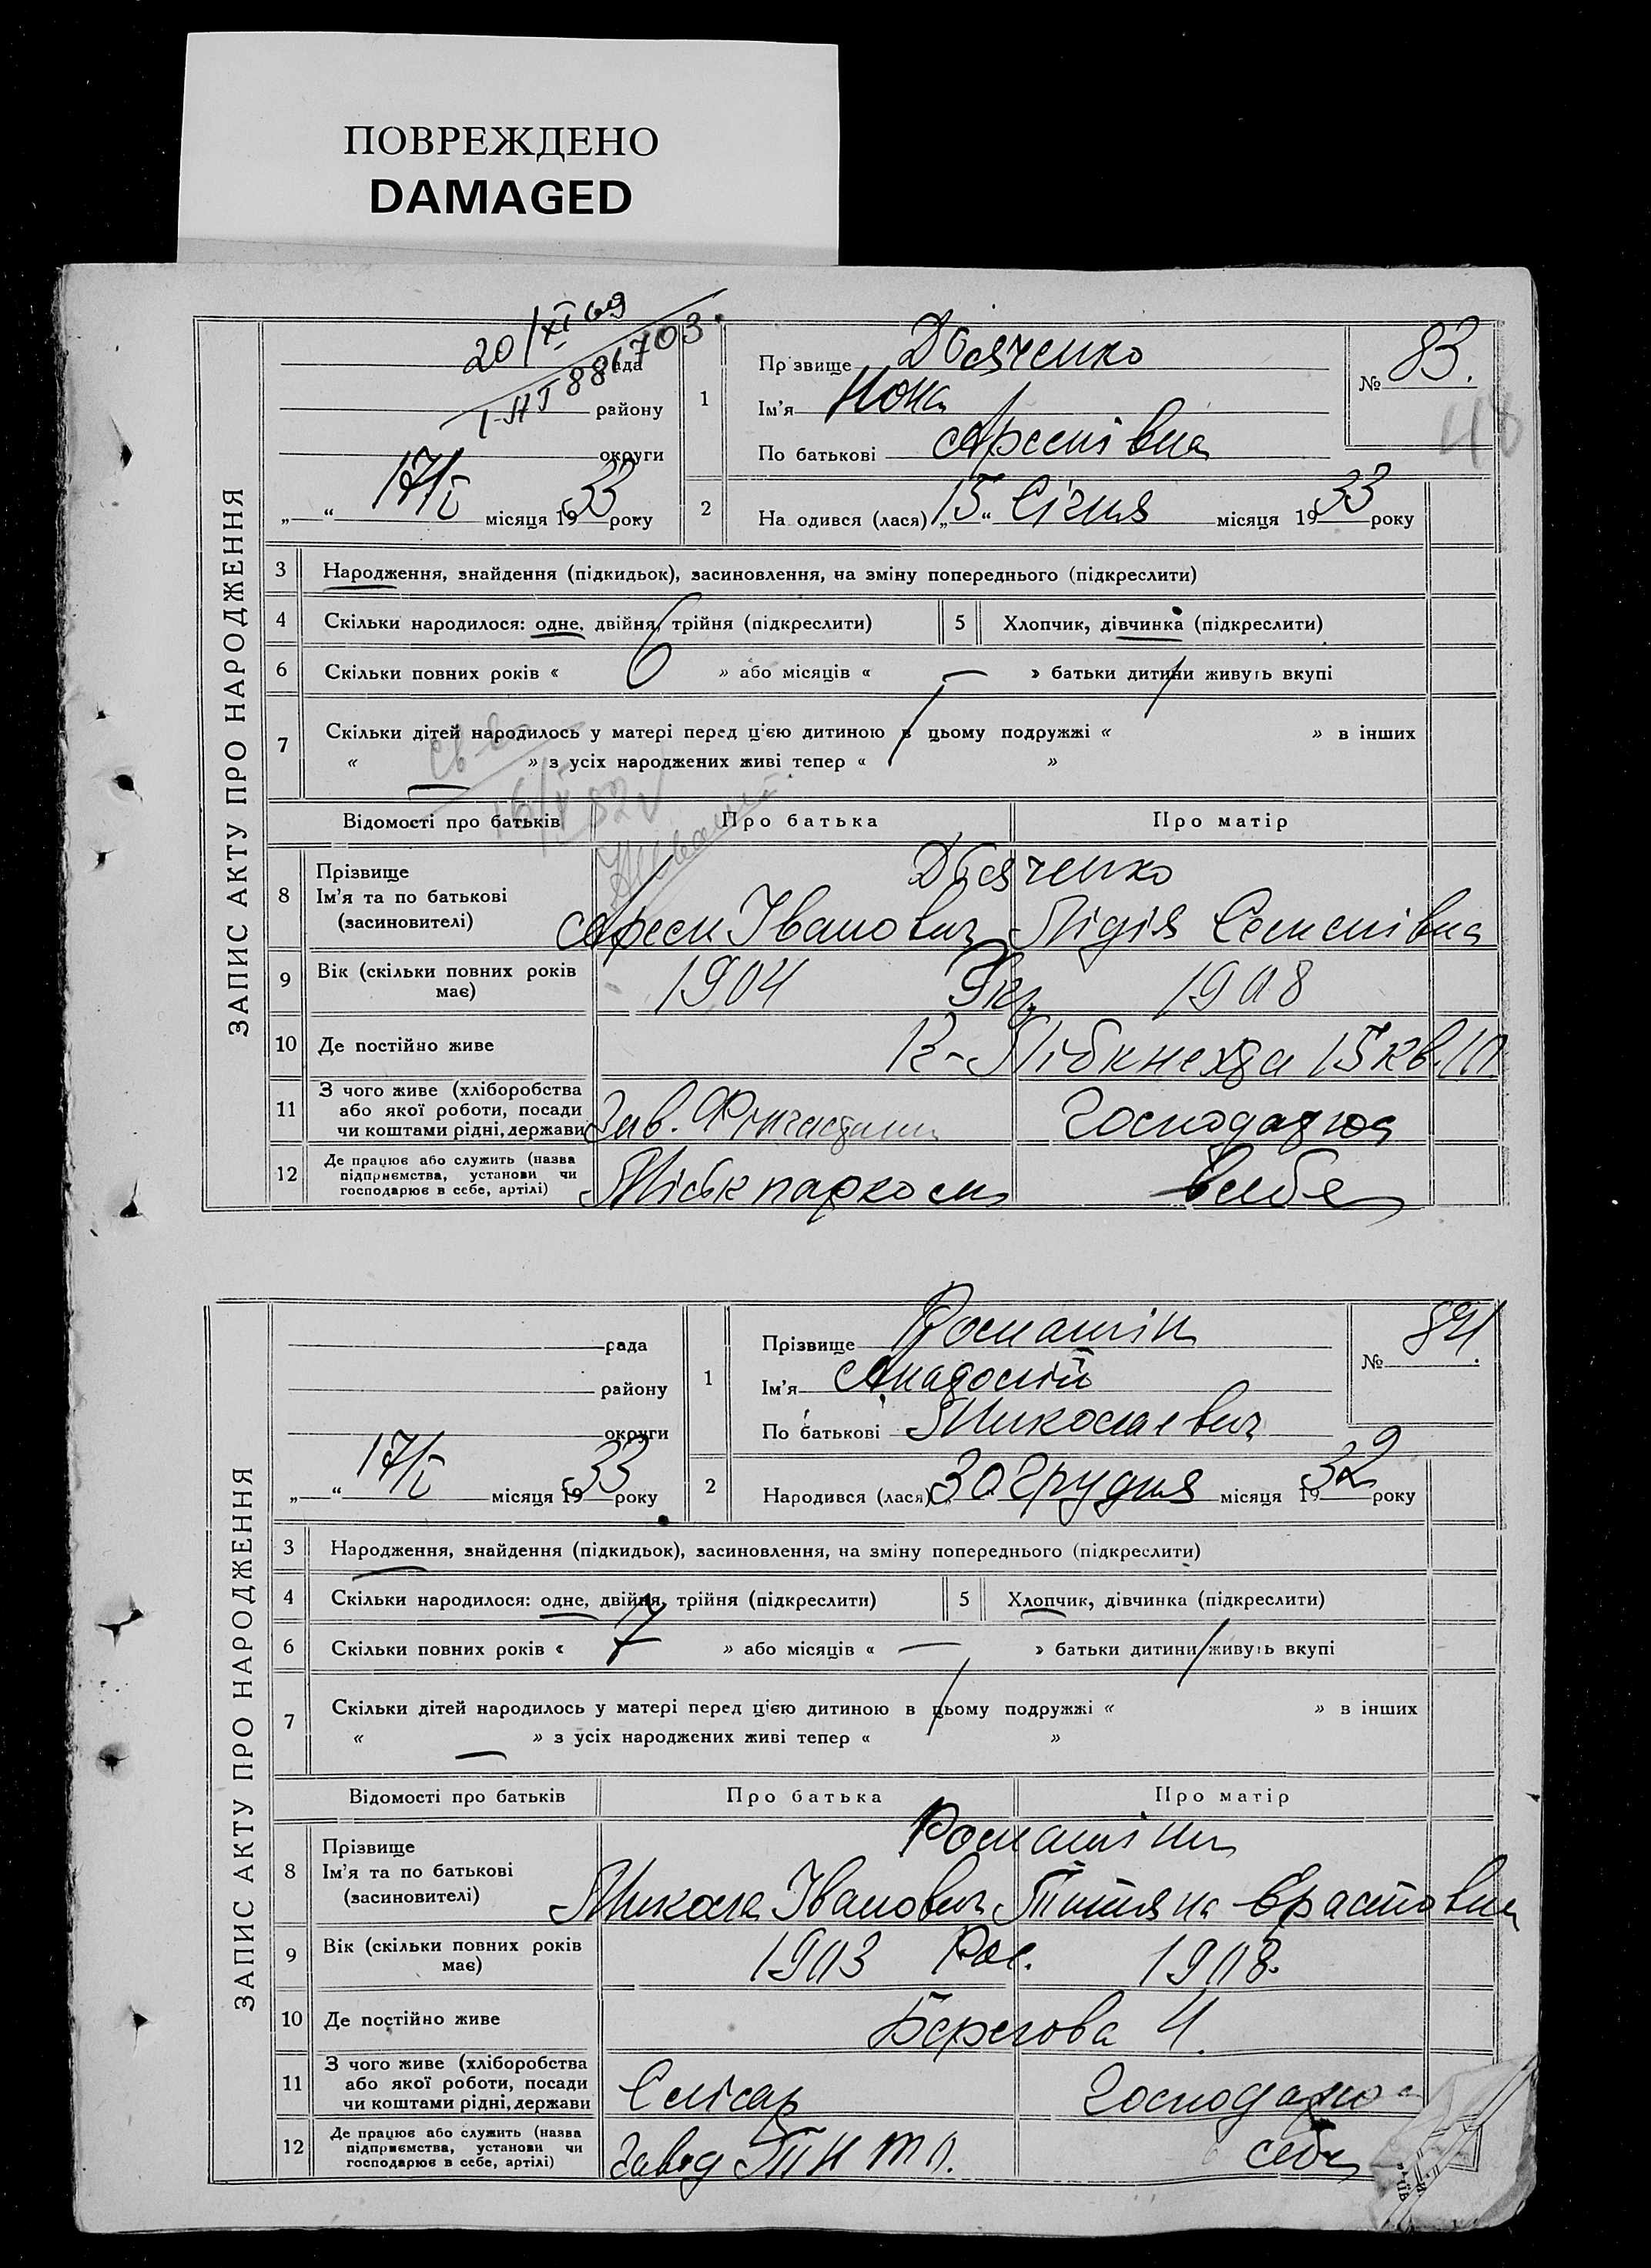 ПОВРЕЖДЕНО
DAMAGED
ЗАПИС АКТУ ПРО НАРОДЖЕННЯ
20/XI 69
886703.
рада
району
округи
„ “ 17/I місяця 1933 року
1
Прізвище Дяченко
Ім'я Нона
По батькові Арсенівна
№ 83.
48
2
На одився (лася) „15“ Січня місяця 1933 року
3 Народження, знайдення (підкидьок), засиновлення, на зміну попереднього (підкреслити)
4 Скільки народилося: одне, двійня, трійня (підкреслити)
5 Хлопчик, дівчинка (підкреслити)
6 Скільки повних років « 6 » або місяців « — » батьки дитини живуть вкупі
7 Скільки дітей народилось у матері перед цією дитиною в цьому подружжі « » в інших
« — » з усіх народжених живі тепер « »
Відомості про батьків
Про батька
Про матір
8 Прізвище
Ім'я та по батькові
(засиновителі)
Дяченко
Арсен Іванович Лідія Семенівна
9 Вік (скільки повних років має)
1904 Укр. 1908
10 Де постійно живе
К-Лібкнехта 15 кв. 10
11 З чого живе (хліборобства або якої роботи, посади чи коштами рідні, держави
Зав.
Господарює
12 Де працює або служить (назва підприємства, установи чи господарює в себе, артілі)
Міськпарком
в себе
ЗАПИС АКТУ ПРО НАРОДЖЕННЯ
рада
району
округи
„ “ 17/I місяця 1933 року
1
Прізвище Ромашін
Ім'я Анатолій
По батькові Миколаєвич
№ 84.
2
Народився (лася) 30 Грудня місяця 1932 року
3 Народження, знайдення (підкидьок), засиновлення, на зміну попереднього (підкреслити)
4 Скільки народилося: одне, двійня, трійня (підкреслити)
5 Хлопчик, дівчинка (підкреслити)
6 Скільки повних років « 7 » або місяців « — » батьки дитини живуть вкупі
7 Скільки дітей народилось у матері перед цією дитиною в цьому подружжі « » в інших
« — » з усіх народжених живі тепер « »
Відомості про батьків
Про батька
Про матір
8 Прізвище
Ім'я та по батькові
(засиновителі)
Ромашіни
Микола Іванович Татяна Ерастовна
9 Вік (скільки повних років має)
1903 Рос. 1908.
10 Де постійно живе
Берегова 4.
11 З чого живе (хліборобства або якої роботи, посади чи коштами рідні, держави
Слісар
Господарює
12 Де працює або служить (назва підприємства, установи чи господарює в себе, артілі)
Завод
себе